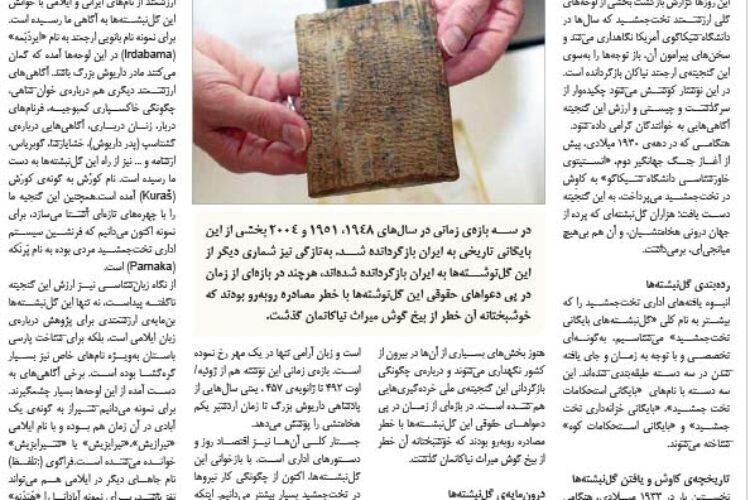 این روزها گزارش بازگشت بخشی از لوحه‌های
گلی ارزشمند تخت‌جمشید که سال‌ها در
دانشگاه شیکاگوی آمریکا نگهداری می‌شد و
سخن‌های پیرامون آن، باز توجه‌ها را به‌سوی
این گنجینه‌ی ارجمند نیاکان بازگردانده است.
در این نوشتار کوشش می‌شود چکیده‌وار از
سرگذشت و چیستی و ارزش این گنجینه
آگاهی‌هایی به خوانندگان گرامی داده شود.
هنگامی که در دهه‌ی ۱۹۳۰ میلادی، پیش
از آغاز جنگ جهانگیر دوم، «انستیتوی
خاورشناسی دانشگاه شیکاگو» به کاوش
در تخت‌جمشید می‌پرداخت، به این گنجینه
دست یافت؛ هزاران گل‌نبشته‌ای که پرده از
جهان درونی هخامنشیان، و آن هم بی‌هیچ
میانجی‌ای، برمی‌داشت.
رده‌بندی گل‌نبشته‌ها
انبوه یافته‌های اداری تخت‌جمشید را که
بیشتر به نام کلی «گل‌نبشته‌های بایگانی
تخت‌جمشید» می‌شناسیم، به‌گونه‌ای
تخصصی و با توجه به زمان و جای یافته
شدن در سه دسته طبقه‌بندی شده‌اند. این
سه دسته با نام‌های «بایگانی استحکامات
تخت جمشید»، «بایگانی خزانه‌داری تخت
جمشید» و «بایگانی استحکامات کوه»
شناخته می‌شوند.
تاریخچه‌ی کاوش و یافتن گل‌نبشته‌ها
نخستین بار در ۱۹۳۳ میلادی هنگامی
در سه بازه‌ی زمانی در سال‌های ۱۹۴۸، ۱۹۵۱ و ۲۰۰۴ بخشی از این
بایگانی تاریخی به ایران بازگردانده شد، به‌تازگی نیز شماری دیگر از
این گل‌نوشته‌ها به ایران بازگردانده شده‌اند، هرچند در بازه‌ای از زمان
در پی دعواهای حقوقی این گل‌نوشته‌ها با خطر مصادره روبه‌رو بودند که
خوشبختانه آن خطر از بیخ گوش میراث نیاکانمان گذشت.
هنوز بخش‌های بسیاری از آن‌ها در بیرون از
کشور نگهداری می‌شوند و درباره‌ی چگونگی
بازگردانی این گنجینه‌ی ملی خرده‌گیری‌هایی
هم شده است. در بازه‌ای از زمان در پی
دعواهای حقوقی این گل‌نبشته‌ها با خطر
مصادره روبه‌رو بودند که خوشبختانه آن خطر
از بیخ گوش میراث نیاکانمان گذشت.
درون‌مایه‌ی گل‌نبشته‌ها
است و زبان آرامی تنها در یک مهر رخ نموده
است. بازه‌ی زمانی این نوشته هم از ژوئیه/
اوت ۴۹۲ تا ژانویه‌ی ۴۵۷ ، یعنی سال‌هایی از
پادشاهی داریوش بزرگ تا زمان اردشیر یکم
هخامنشی را پوشش می‌دهد.
جستار کلی آن‌ها نیز اقتصاد روز و
دستورهای اداری است. با بازخوانی این
گل‌نبشته‌ها، اکنون از چگونگی کار نیروها
در تخت‌جمشید بسیار بیشتر می‌دانیم. اینکه
ارزشمند از نام‌های ایرانی و ایلامی با خوانش
این گل‌نبشته‌ها به آگاهی ما رسیده است.
برای نمونه نام بانویی ارجمند به نام «ایردَبَمه»
(Irdabama) در این لوحه‌ها آمده که گمان
می‌کنند مادر داریوش بزرگ باشد. آگاهی‌های
ارزشمند دیگری هم درباره‌ی خوان شاهی،
چگونگی خاکسپاری کمبوجیه، فرنام‌های
دربار، زنان درباری، آگاهی‌هایی درباره‌ی
گشتاسپ (پدر داریوش)، خشایارشا، گوبریاس،
ارشامه و ... نیز از راه این گل‌نبشته‌ها به دست
ما رسیده است. نام کورُش به گونه‌ی کورَش
(Kuraš) آمده است.همچنین این گنجینه ما
را با چهره‌های تازه‌ای آشنا می‌سازد، برای
نمونه اکنون می‌دانیم که فرنشین سیستم
اداری تخت‌جمشید مردی بوده به نام پَرنَکه
(Parnaka) است.
از نگاه زبان‌شناسی نیز ارزش این گنجینه
ناگفته پیداست، نه تنها این گل‌نبشته‌ها
بن‌مایه‌ی ارزشمندی برای پژوهش درباره‌ی
زبان ایلامی است، بلکه برای شناخت پارسی
باستان به‌ویژه نام‌های خاص نیز بسیار
گره‌گشا بوده است. برخی آگاهی‌های به
دست آمده از این لوحه‌ها بسیار چشمگیرند.
برای نمونه می‌دانیم شیراز به گونه‌ی یک
آبادی در آن زمان هم بوده و با نام ایلامی
«تیرازیش»،«تیرایزیش» یا «شیرایزیش»
خوانده می‌شده است.فراگوی (:تلفظ)
نام جاهای دیگر در ایلامی هم می‌تواند